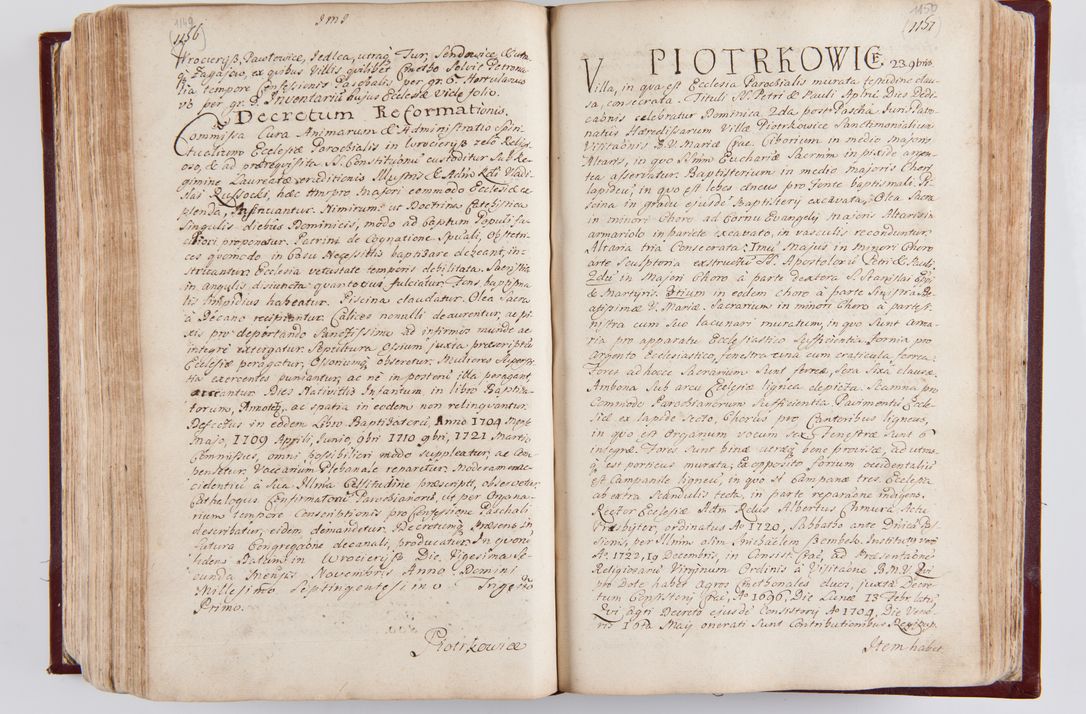 1149
1156
Wrocieryß, Pawłowice, Jedlca, utraq Tur, Sendowice, &
q Zagaico, ex quibus Villis quilibet Cmetho Solvit Petrona
lia tempore Confessionis Paschalis per gr. 6. Hortulanus
vo per gr. 3. Inventarium hujus Ecclesiæ vide folio.
Decretum Reformationis.
Commissa Cura Animarum & Administratio Spiri
tualium Ecclesiæ Parochialis in Wrocieryß zelo Religi
oso, & ad prærequisita SS. Constitutionu custoditur Sub Re
gimine Laureatæ eruditionis Illustris & Adm Rdi Vladi
slai Russocki, hæc tm pro majori commodo Ecclesiæ ex
plenda, insinuantur. Nimirum: ut Doctrina Catechistica
singulis diebus Dominicis, modo ad captum Populi fa
ciliori proponatur. Patrini de Cognatione Spũali, Obstetri
ces quomodo in Casu Necessitatis baptisare debeant, in
struantur. Ecclesia vetustate temporis debilitata. Sacristia
in angulis disiuncta quantocius fulciatur. Fons baptisma
lis mundius habeatur. Piscina claudatur. Olea Sacra
à Decano recipiantur. Calices nonnulli deaurentur, ac pi
xis pro deportando Sanctissimo ad infirmos munde ac
integre extergatur. Sepultura Ossium juxta præscriptu
Ecclesiæ peragatur, Ossoriumq obseretur. Mulieres
exercentes puniantur, ac ne in posterũ illa peragant,
arceantur. Dies Nativitis Infantum in libro Baptiza
torum, Annotetr, ac spatia in eodem non relinquantur.
Defectus in eodem Libro Baptisatorũ, Anno 1704 Mense
Majo, 1709 Aprili, Junio, 9bri 1710 9bri, 1721 Martio
Commissus, omni possibiliori modo suppleatur, ac Com
pensetur. Vaccarium Plebanale reparetur. Moderamen
cidentiũ à Sua Illma Celsitudine præscripti, observetur
Cathalogus Confirmatorũ Parochianorũ, ut per Organa
rium tempore Conscriptionis pro Confessione Paschali
describatur, eidem demandetur. Decretumq Præsens in
futura Congregaone decanali, producatur. In quorũ
fidem Datum in Wrocieryß Die Vigesima Se
cunda Mensis Novembris Anno Domini
Millesimo Septingentesimo Trigesimo
Primo.
Piotrkowice
1150
1157
PIOTRKOWICE. 23. 9bris
Villa, in qua est Ecclesia Parochialis murata testudine clau
sa, consecrata. Tituli SS. Petri & Pauli Apni Dies Dedi
caonis celebratur Dominica 2da post Pascha Juris Patro
natus Hæredissarum Villæ Piotrkowice Sanctimonialiũ
Visitaonis B. V. Mariæ Crac. Ciborium in medio majoris
Altaris, in quo SSmm Euchariæ Sacrm̃ in pixide argen
tea asservatur. Baptisterium in medio majoris Chori
lapideũ, in quo est lebes æneus pro fonte baptismali. Pi
scina in gradu ejusdẽ Baptisterij excavata. Olea Sacra
in minori Choro ad Cornu Evangelij maioris Altaris in
armariolo in pariete excavato, in vasculis reconduntur.
Altaria tria Consecrata: Imũ Majus in minori Choro
arte Sculptoria exstructũ SS. Apostolorũ Petri & Pauli
2dũ in Majori Choro à parte dextera S. Stanislai Epi
& Martyris. 3tium in eodem choro à parte Sinistra Be
atissimæ V. Mariæ. Sacrarium in minori Choro à parte Si
nistra cum suo lacunari muratum, in quo sunt arma
ria pro apparatu Ecclesiastico Sufficientia, fornia pro
argento Ecclesiastico, fenestra una cum craticula ferrea.
Fores ad hocce Sacrarium sunt ferreæ, sera fixa clausæ.
Ambona Sub arcu Ecclesiæ lignea depicta. Scamna pro
Commodo Parochianorum Sufficientia Pavimentũ Eccle
siæ ex lapide Secto, Chorus pro Cantoribus ligneus,
in quo est Organum vocum sex Fenestræ Sunt 6
integræ. Fores Sunt binæ utræq bene provisæ, ad utrũ
q est porticus murata, Ex opposito forium occidentaliũ
est Campanile ligneũ, in quo st Campanæ tres. Ecclesia
ab extra Scandulis tecta, in parte reparaone indigens.
Rector Ecclesiæ Adm Rdus Albertus Chmura Actu
Præsbiter, ordinatus Ao 1720, Sabbatho ante Dnica Pas
sionis, per Illmm olim Michaelem Szembek. Institutus vero
Ao 1722, 19 Decembris, in Consisti Crac, ad Præsentaone
Religiosarũ Virginum Ordinis à Visitaone B. M. V. Qui
pro Dote habet Agros Cmethonales duos, juxta Decre
tum Consistorij Crac, Ao 1696, Die Lunæ 13 Febr. latũ,
Qui agri Decreto ejusdẽ Consistorij Ao 1704, Die Vene
ris Maij onerati Sunt Contributionibus
Item habet